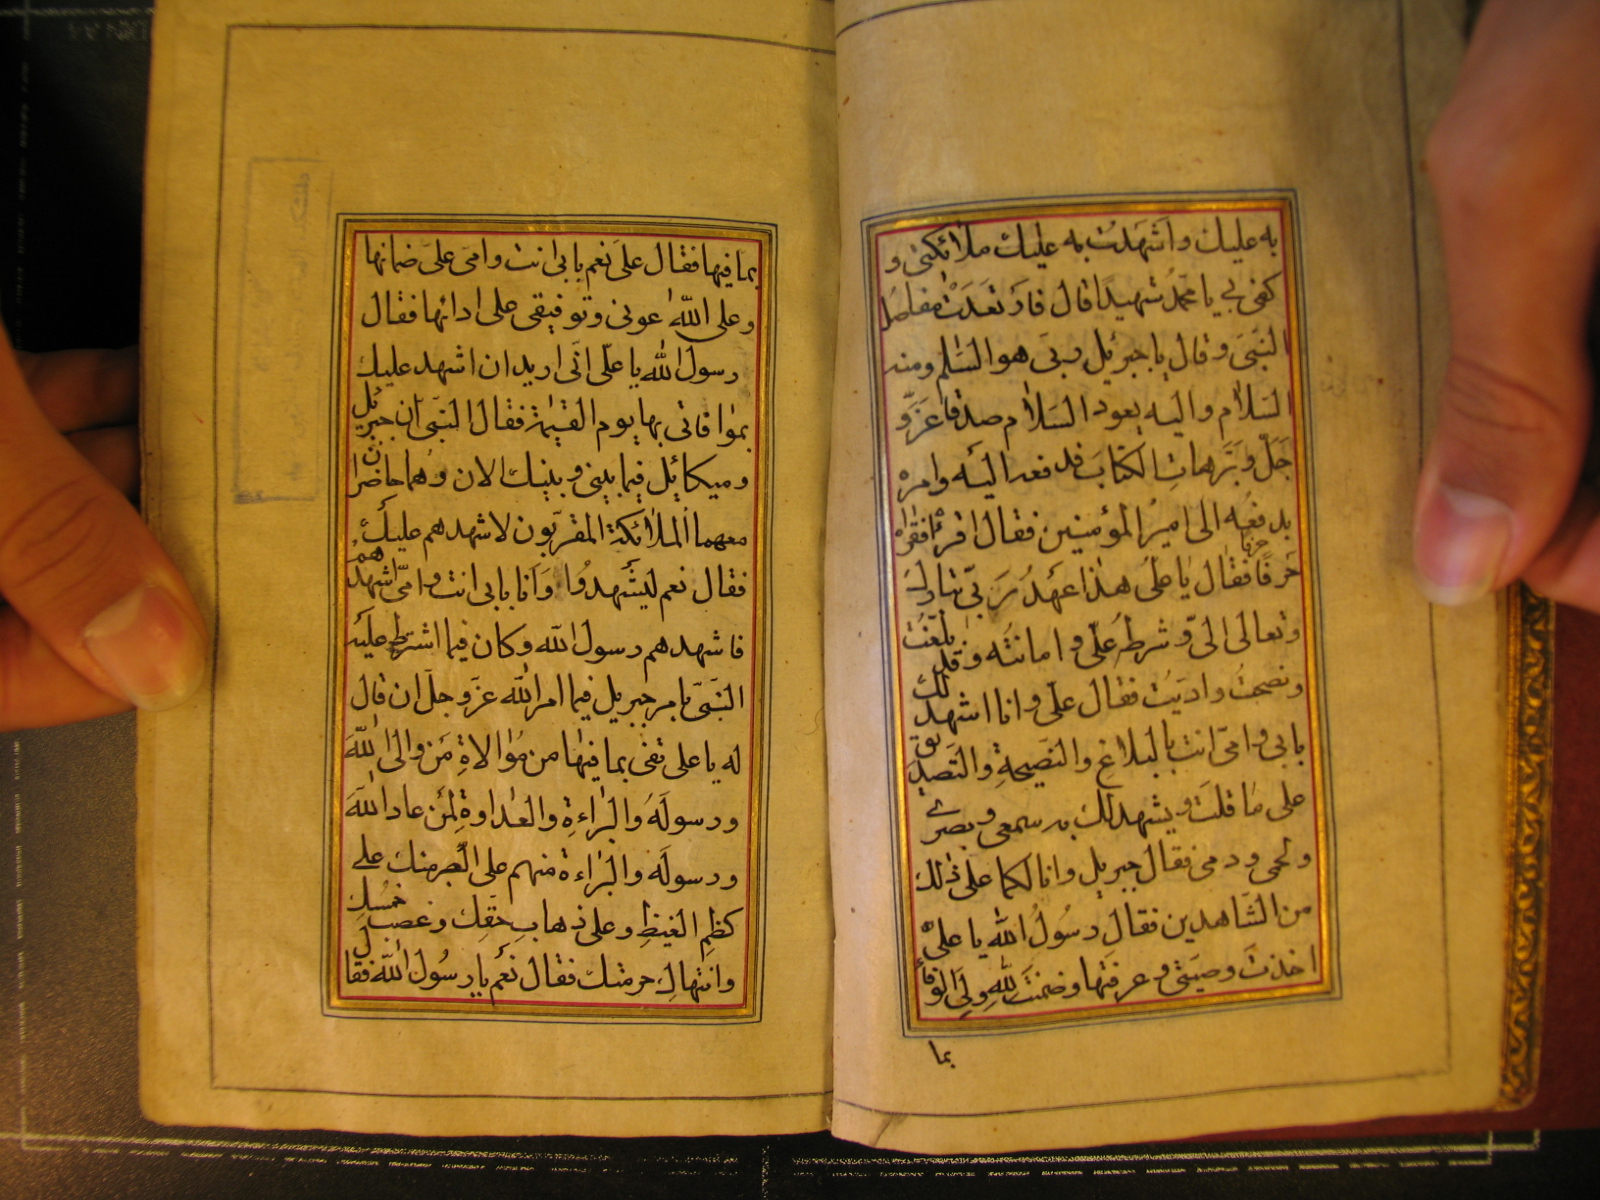 به عليك واشهدت به عليك ملائكتى و
كفى بى يا محمد شهيدا قال فارتعدت مفاصل
النبى وقال يا جبرئيل ربى هو السلم ومنه
السلام واليه يعود السلام صدق عز و
جل وبر هات الكتاب فدفعه اليه وامره
بدفعه الى امير المؤمنين فقال اقرأه فقراه
حرفا حرفا فقال يا على هذا عهد ربى تبارك
وتعالى الى وشرطه على وامانته وقد بلغت
ونصحت واديت فقال على وانا اشهد لك
بابى وامى انت بالبلاغ والنصيحة والتصديق
على ما قلت ويشهد لك به سمعى وبصرى
ولحمى ودمى فقال جبريل وانا لكما على ذلك
من الشاهدين فقال رسول الله يا على
اخذت وصيتى وعرفتها وضمنت لله ولى الوفاء
بما
بما فيها فقال على نعم بابى انت وامى على ضمانها
وعلى الله عونى وتوفيقى على ادائها فقال
رسول الله يا على انى اريد ان اشهد عليك
بموافاتى بها يوم القيمة فقال النبى ان جبرئيل
وميكائيل فيما بينى وبينك الان وهما حاضران
معهما الملائكة المقربون لاشهدهم عليك
فقال نعم ليشهدوا وانا بابى انت وامى اشهدهم
فاشهدهم رسول الله وكان فيما اشترط عليه
النبى بامر جبريل فيما امر الله عز وجل ان قال
له يا على تفى بما فيها من موالاة من والى الله
ورسوله والبراءة والعداوة لمن عاد الله
ورسوله والبراءة منهم على الصبر منك على
كظم الغيظ وعلى ذهاب حقك وغصب خمسك
وانتهاك حرمتك فقال نعم يا رسول الله فقال